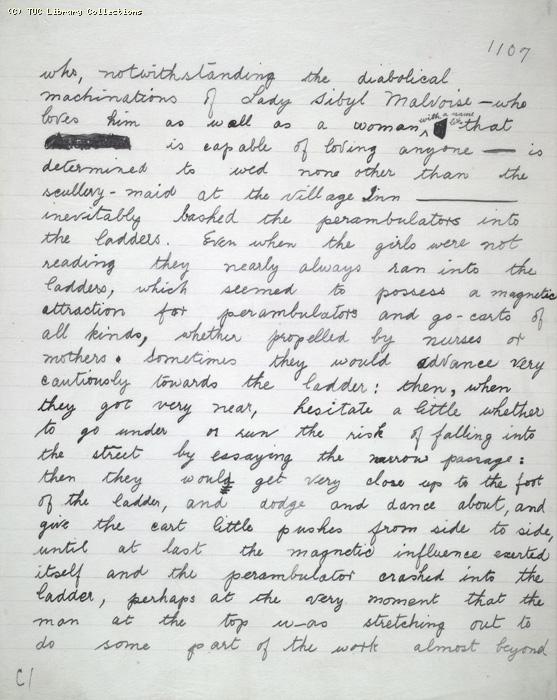 (C) TUC Library Collections
1107
who, notwithstanding the diabolical
machinations of Lady Sibyl Malvoise — who
loves him as well as a woman with a name like that
is capable of loving anyone — is
determined to wed none other than the
scullery-maid at the village Inn —
inevitably bashed the perambulators into
the ladders. Even when the girls were not
reading they nearly always ran into the
ladders, which seemed to possess a magnetic
attraction for perambulators and go-carts of
all kinds, whether propelled by nurses or
mothers. Sometimes they would advance very
cautiously towards the ladder: then, when
they got very near, hesitate a little whether
to go under or run the risk of falling into
the street by essaying the narrow passage:
then they would get very close up to the foot
of the ladder, and dodge and dance about, and
give the cart little pushes from side to side,
until at last the magnetic influence exerted
itself and the perambulator crashed into the
ladder, perhaps at the very moment that the
man at the top w-as stretching out to
do some part of the work almost beyond
C/